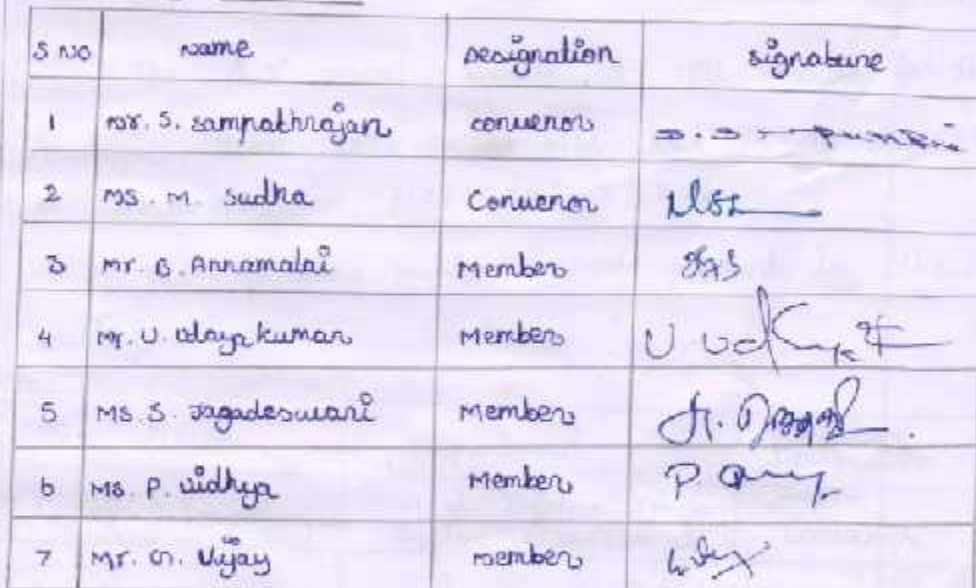 S NO Name Designation Signature
1 Mr. S. Sampathrajan Convenor
2 Ms. M. Sudha Convenor
3 Mr. B. Annamalai Member
4 Mr. U. Udaya kumar Member
5 Ms. S. Jagadeswari Member
6 Ms. P. Vidhya Member P.
7 Mr. G. Vijay Member